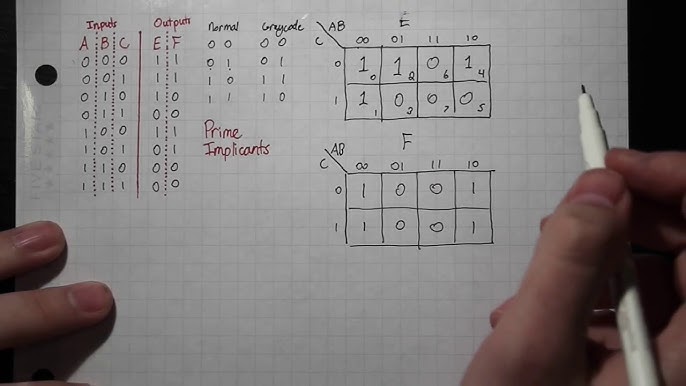 Inputs Outputs Normal Graycode
A B C E F
0 0 0 1 1 0 0 0 0
0 0 1 1 1 0 1 0 1
0 1 0 1 0 1 0 1 1
0 1 1 0 0 1 1 1 0
1 0 0 1 1
1 0 1 0 1
1 1 0 0 0
1 1 1 0 0
Prime
Implicants
E
AB
C 00 01 11 10
0 1 0 1 2 0 6 1 4
1 1 1 0 3 0 7 0 5
F
AB
C 00 01 11 10
0 1 0 0 1
1 1 0 0 1
FIVE